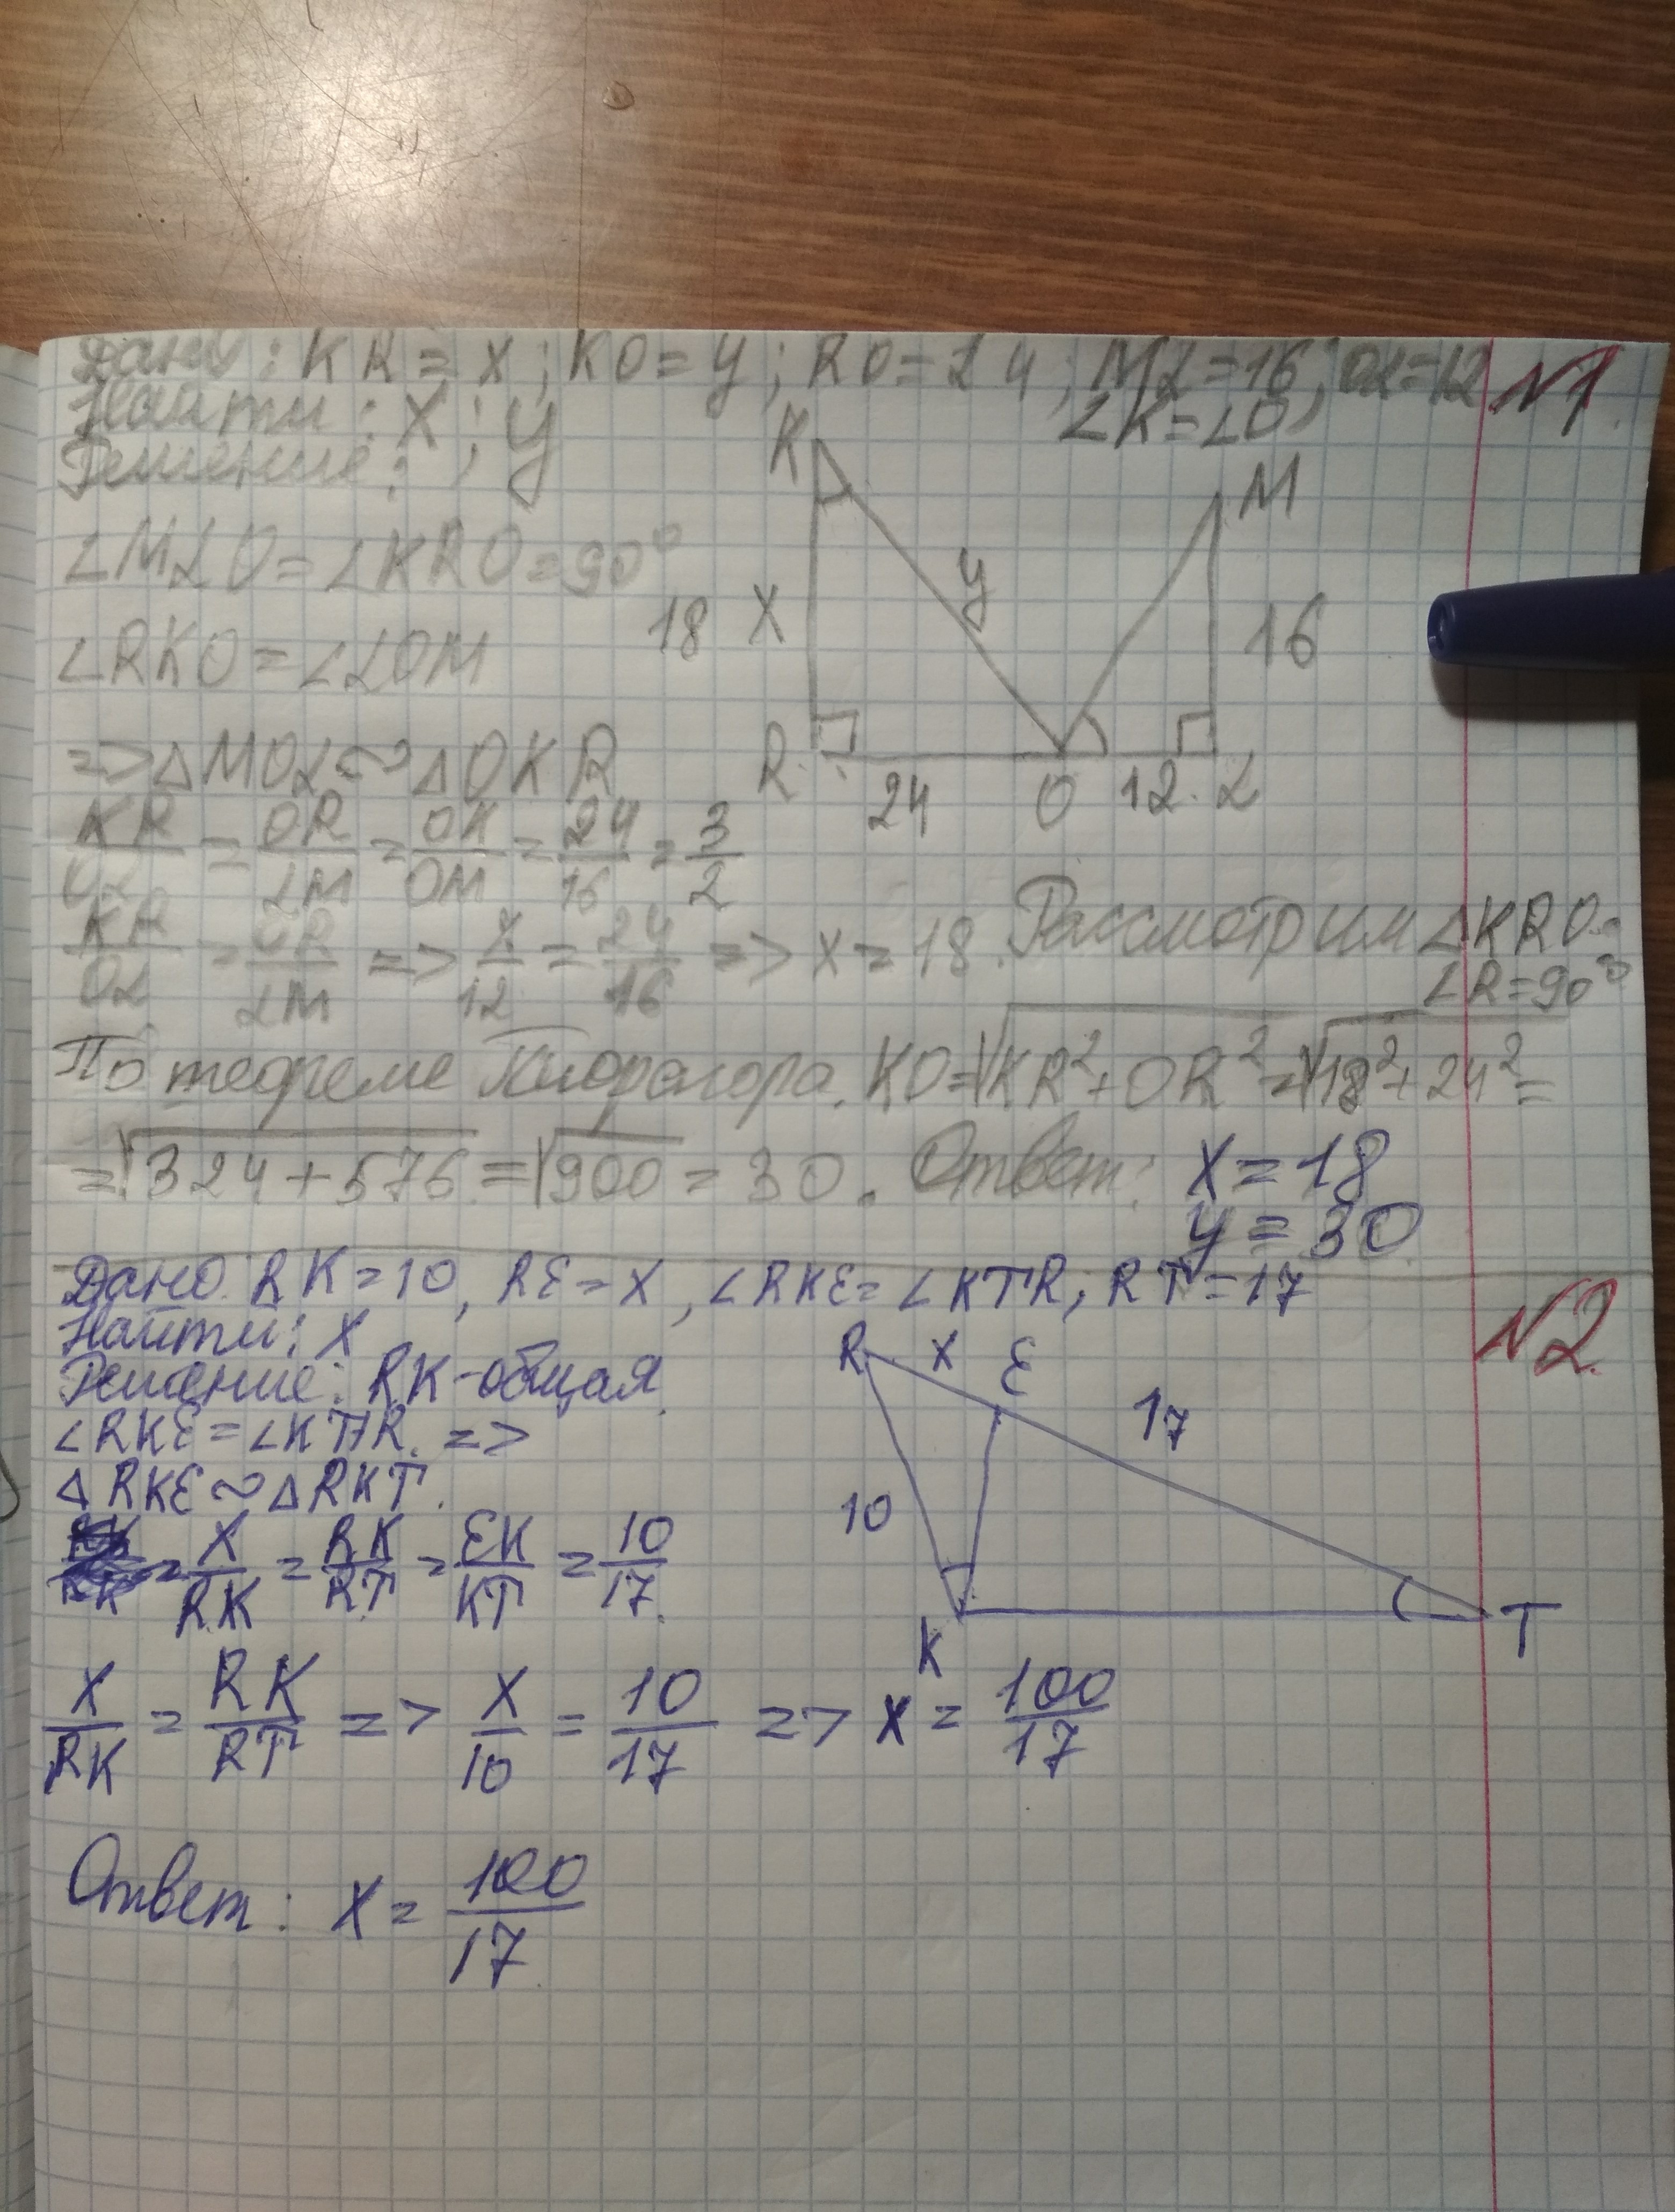 Дано: KR = x; KO = y; RO = 24; ML = 16; OL = 12 №1
Найти: x; y ∠K = ∠O
Решение:
K
M
∠MLO = ∠KRO = 90°
y
18 x
16
∠RKO = ∠LOM
=> △MOL ∾ △OKR
R 24 O 12 L
KR/OL = OR/LM = OK/OM = 24/16 = 3/2
KR/OL = OR/LM => x/12 = 24/16 => x = 18. Рассмотрим △KRO:
∠R = 90°
По теореме Пифрагора. KO = √KR² + OR² = √18² + 24² =
= √324 + 576 = √900 = 30. Ответ: x = 18
y = 30
Дано: RK = 10, RE = x, ∠RKE = ∠KTR; RT = 17
Найти: x №2.
R x E
Решение: RK - общая
17
∠RKE = ∠KTR. =>
△RKE ∾ △RKT.
10
x/RK = RK/RT = EK/KT = 10/17.
K T
x/RK = RK/RT => x/10 = 10/17 => x = 100/17
Ответ: x = 100/17